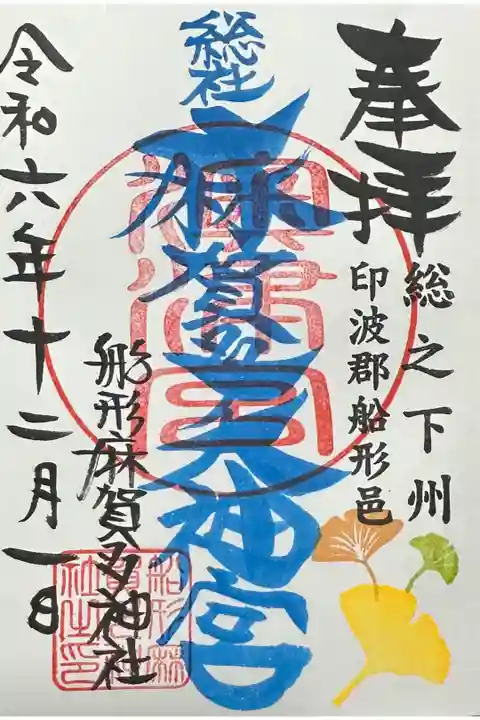 奉拝
総之下州
印波郡船形邑
総社
麻賀多大神宮
船形麻賀多神社
令和六年十二月一日